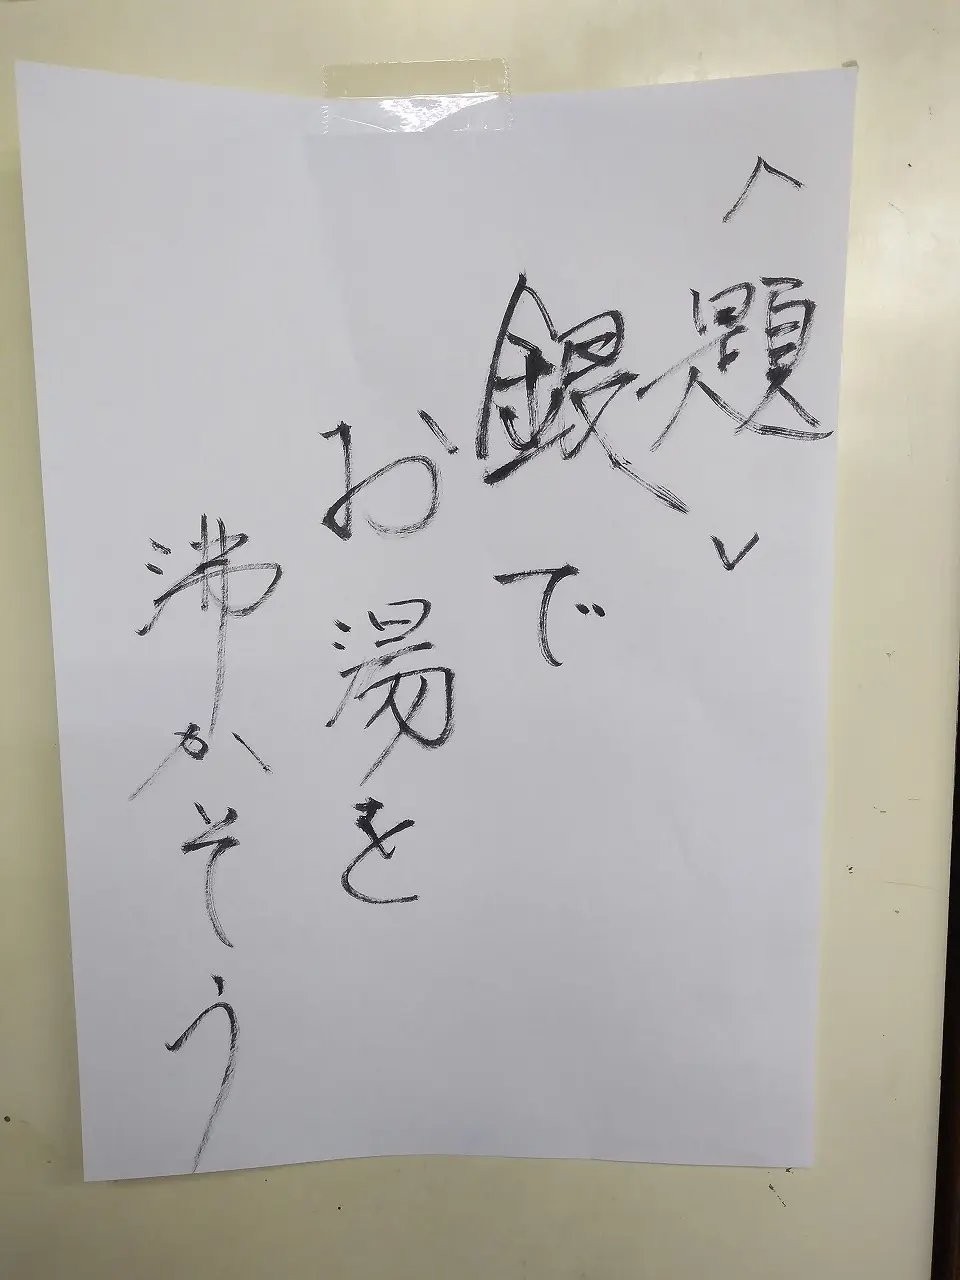 〈題〉
銀で
お湯を
沸かそう